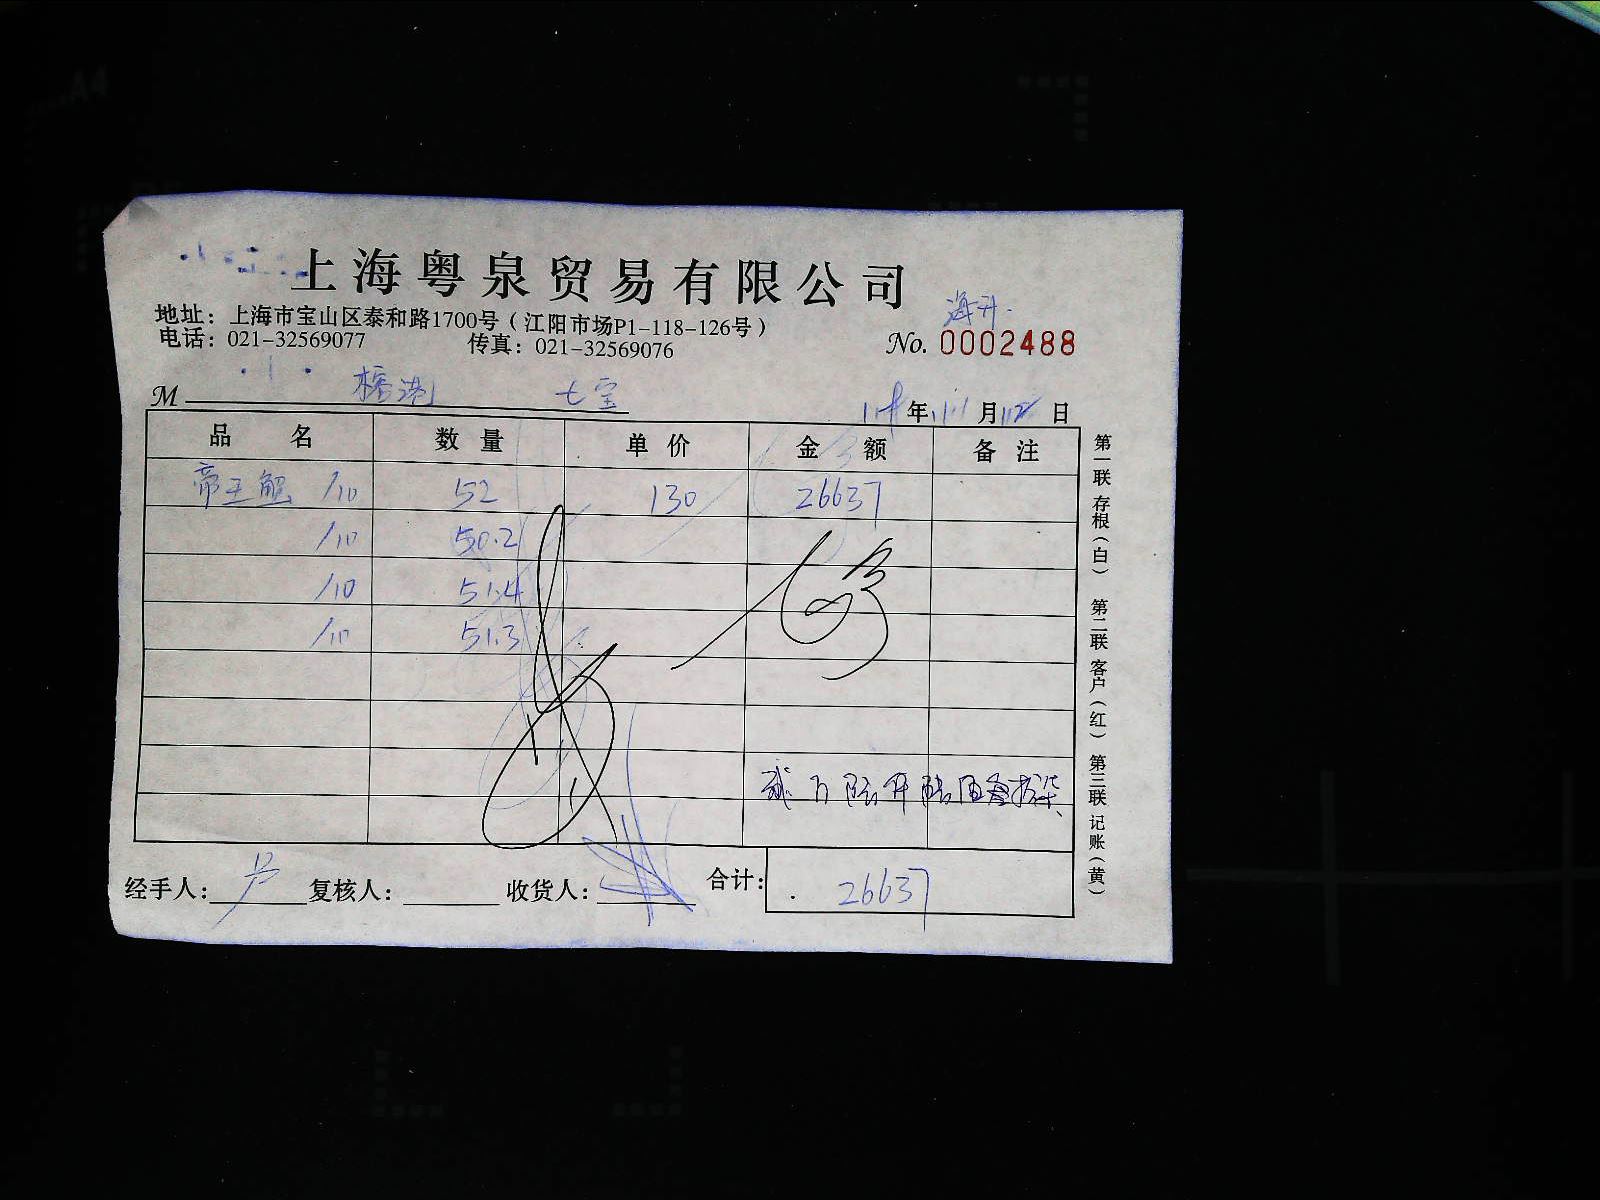 上海粤泉贸易有限公司
地址：上海市宝山区泰和路1700号（江阳市场P1-118-126号）
电话：021-32569077 传真：021-32569076
海升.
No. 0002488
M 七宝
年 月 12 日
品名 数量 单价 金额 备注
帝王蟹 /10 52 130 26637
/10 50.2
/10 51.4
/10 51.3
贰万陆仟陆佰叁拾柒
经手人：卢 复核人： 收货人： 合计： 26637
第一联 存根（白） 第二联 客户（红） 第三联 记账（黄）